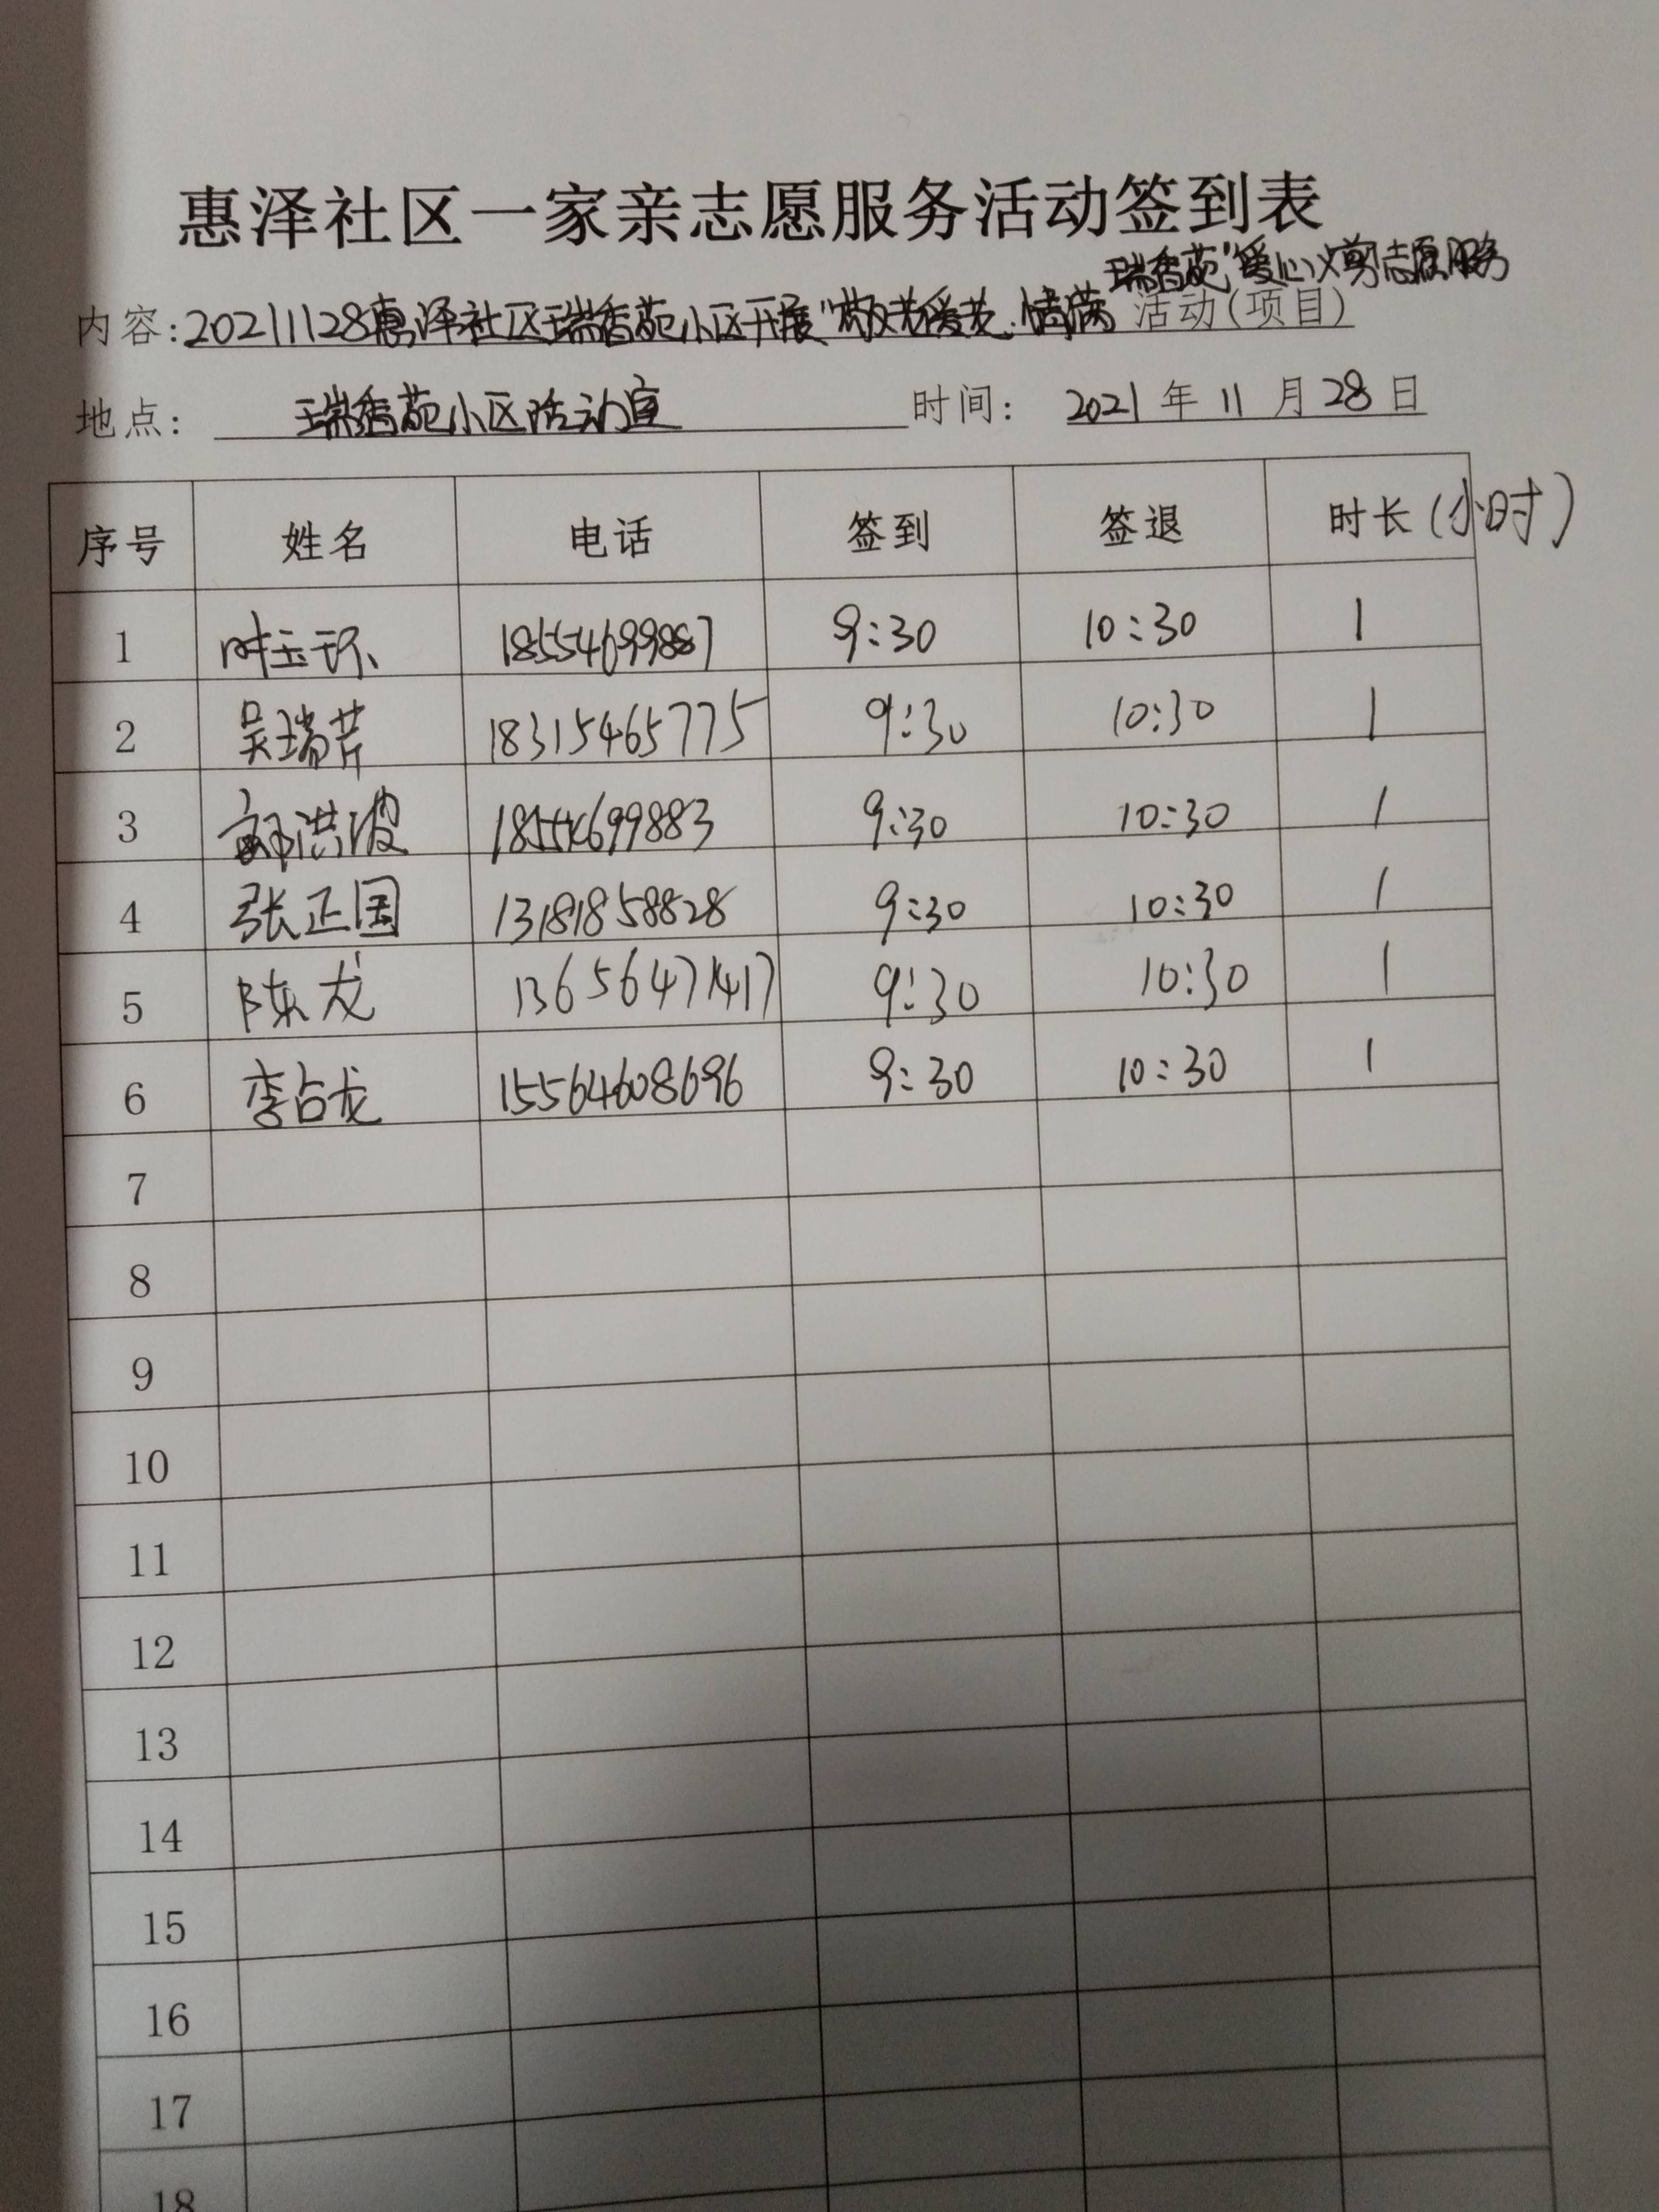 惠泽社区一家亲志愿服务活动签到表
瑞香苑"爱心义剪志愿服务
内容:20211128惠泽社区瑞香苑小区开展"敬老爱老.情满 活动(项目)
地点: 瑞香苑小区活动室 时间: 2021 年 11 月 28 日
序号 姓名 电话 签到 签退 时长(小时)
1 时玉环 18554699887 9:30 10:30 1
2 吴瑞芹 18315465775 9:30 10:30 1
3 洪波 18554699883 9:30 10:30 1
4 张正国 13181858828 9:30 10:30 1
5 陈龙 13656471417 9:30 10:30 1
6 李占龙 15564608696 9:30 10:30 1
7
8
9
10
11
12
13
14
15
16
17
18